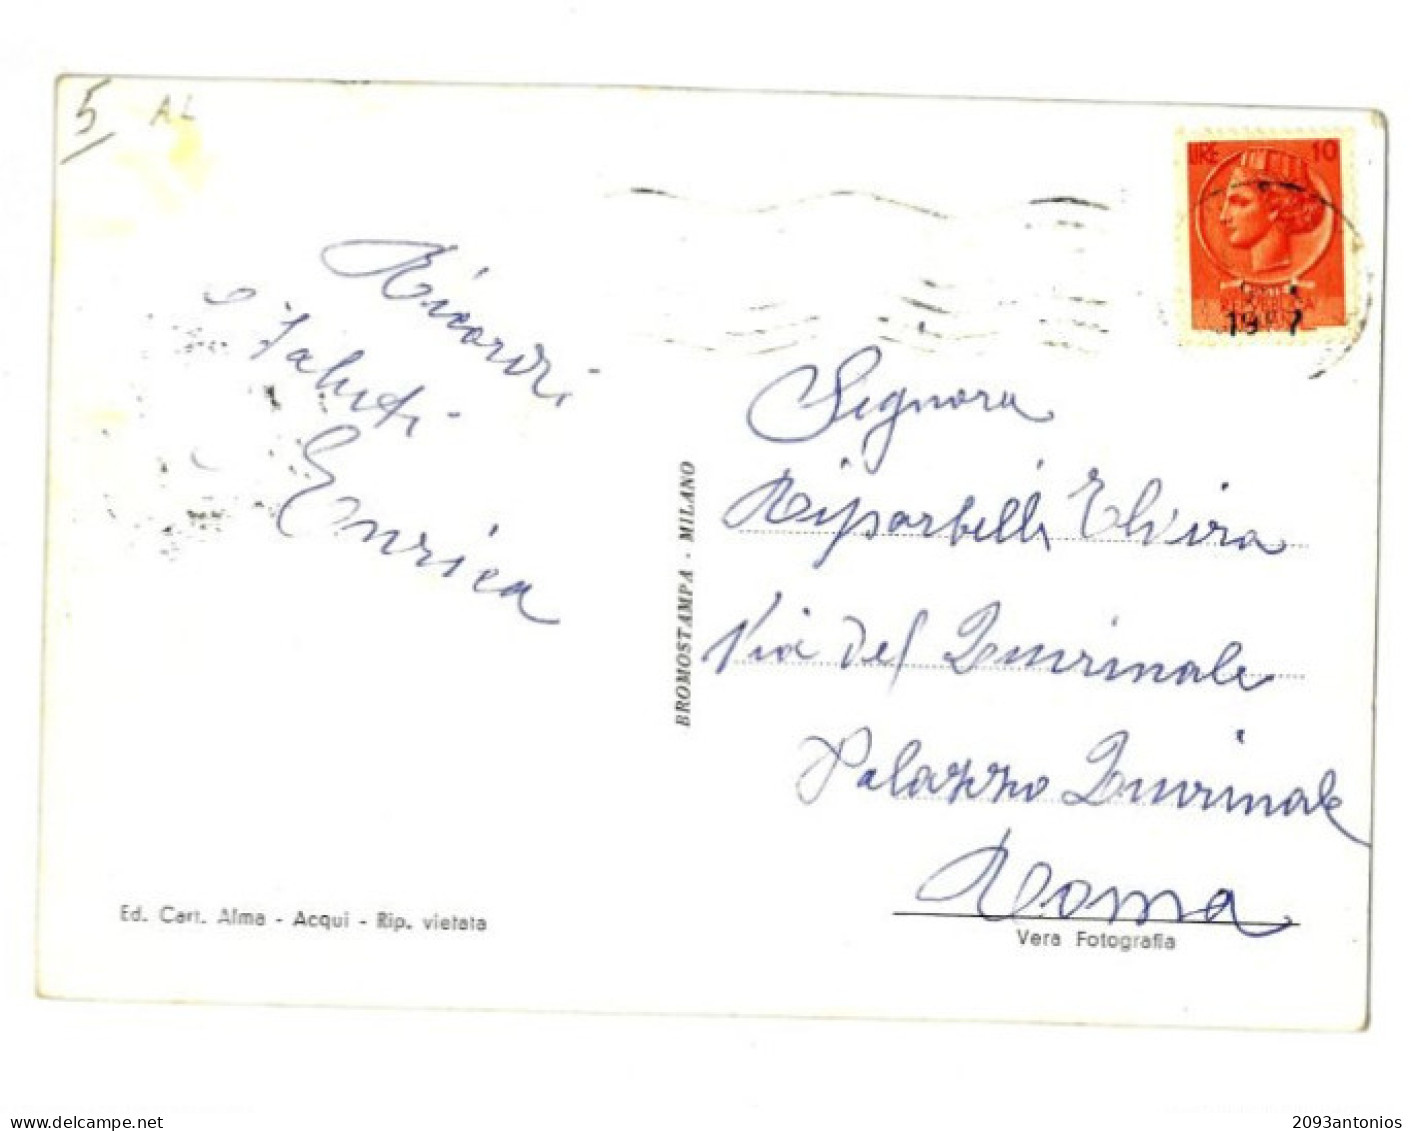 5 AL
LIRE 10
REPVBBLICA
19 7
Ricordi
e saluti
Enrica
Signora
Riparbelli Elvira
Via del Quirinale
Palazzo Quirinale
Roma
BROMOSTAMPA - MILANO
Ed. Cart. Alma - Acqui - Rip. vietata
Vera Fotografia
delcampe.net
2093antonios